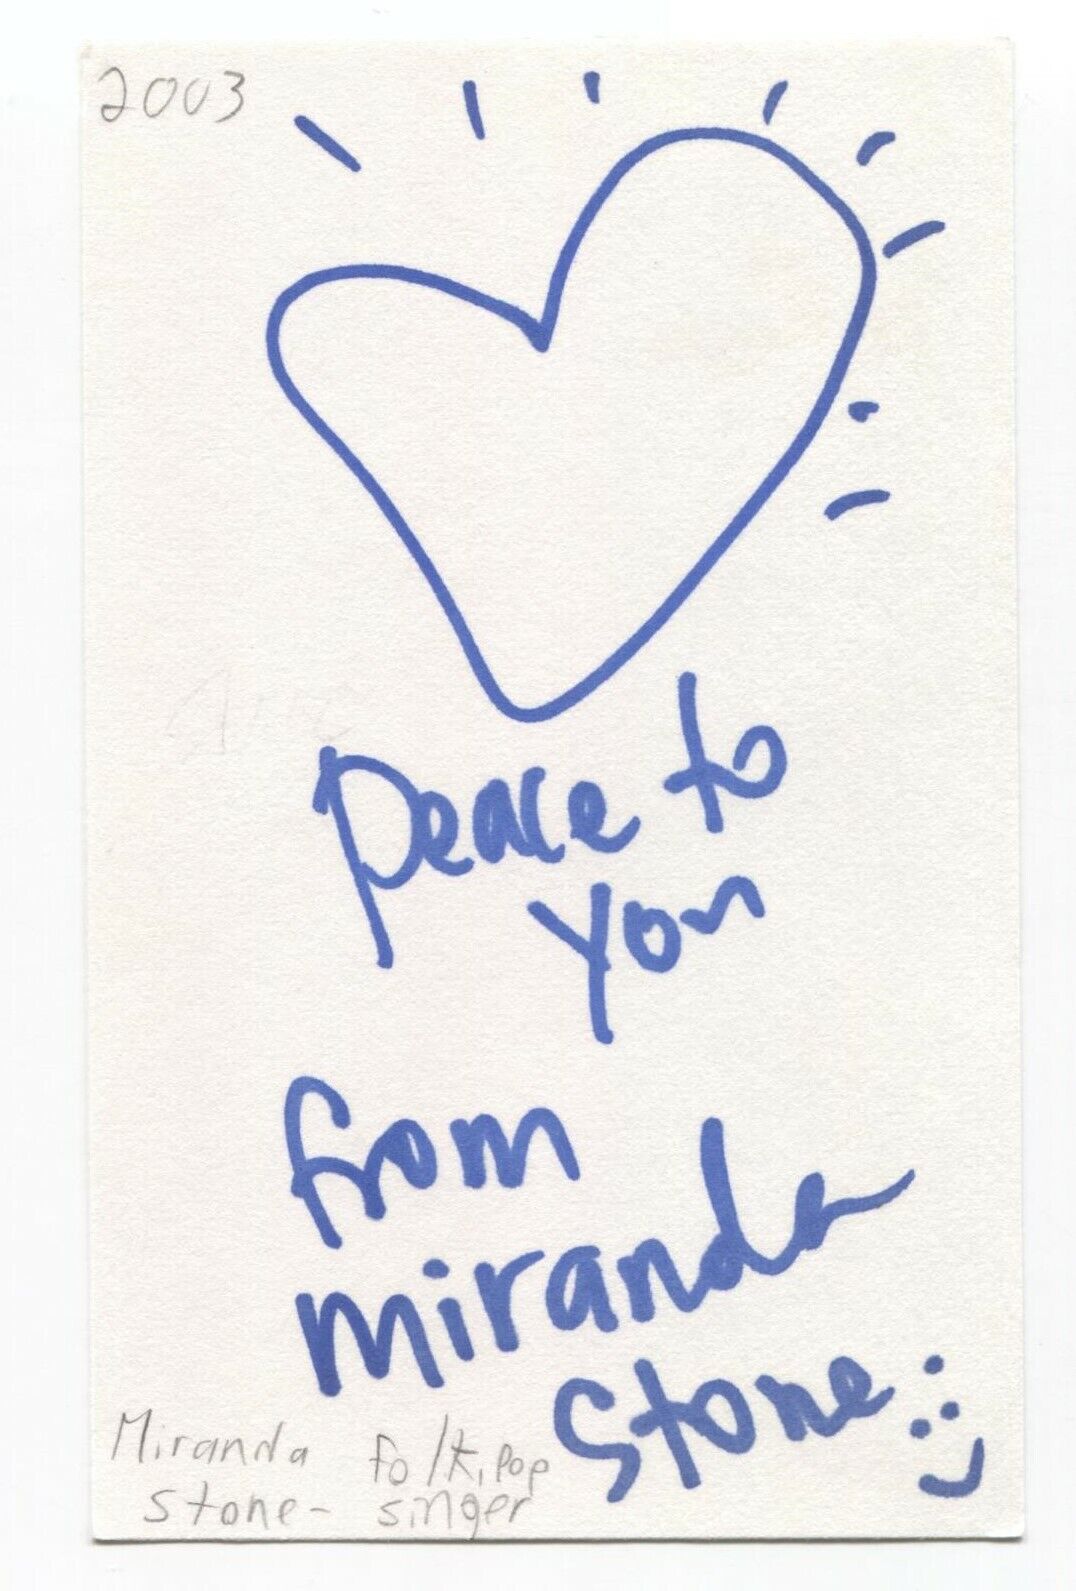 2003
Peace to
you
from
miranda
Stone
Miranda folk, pop
Stone - singer